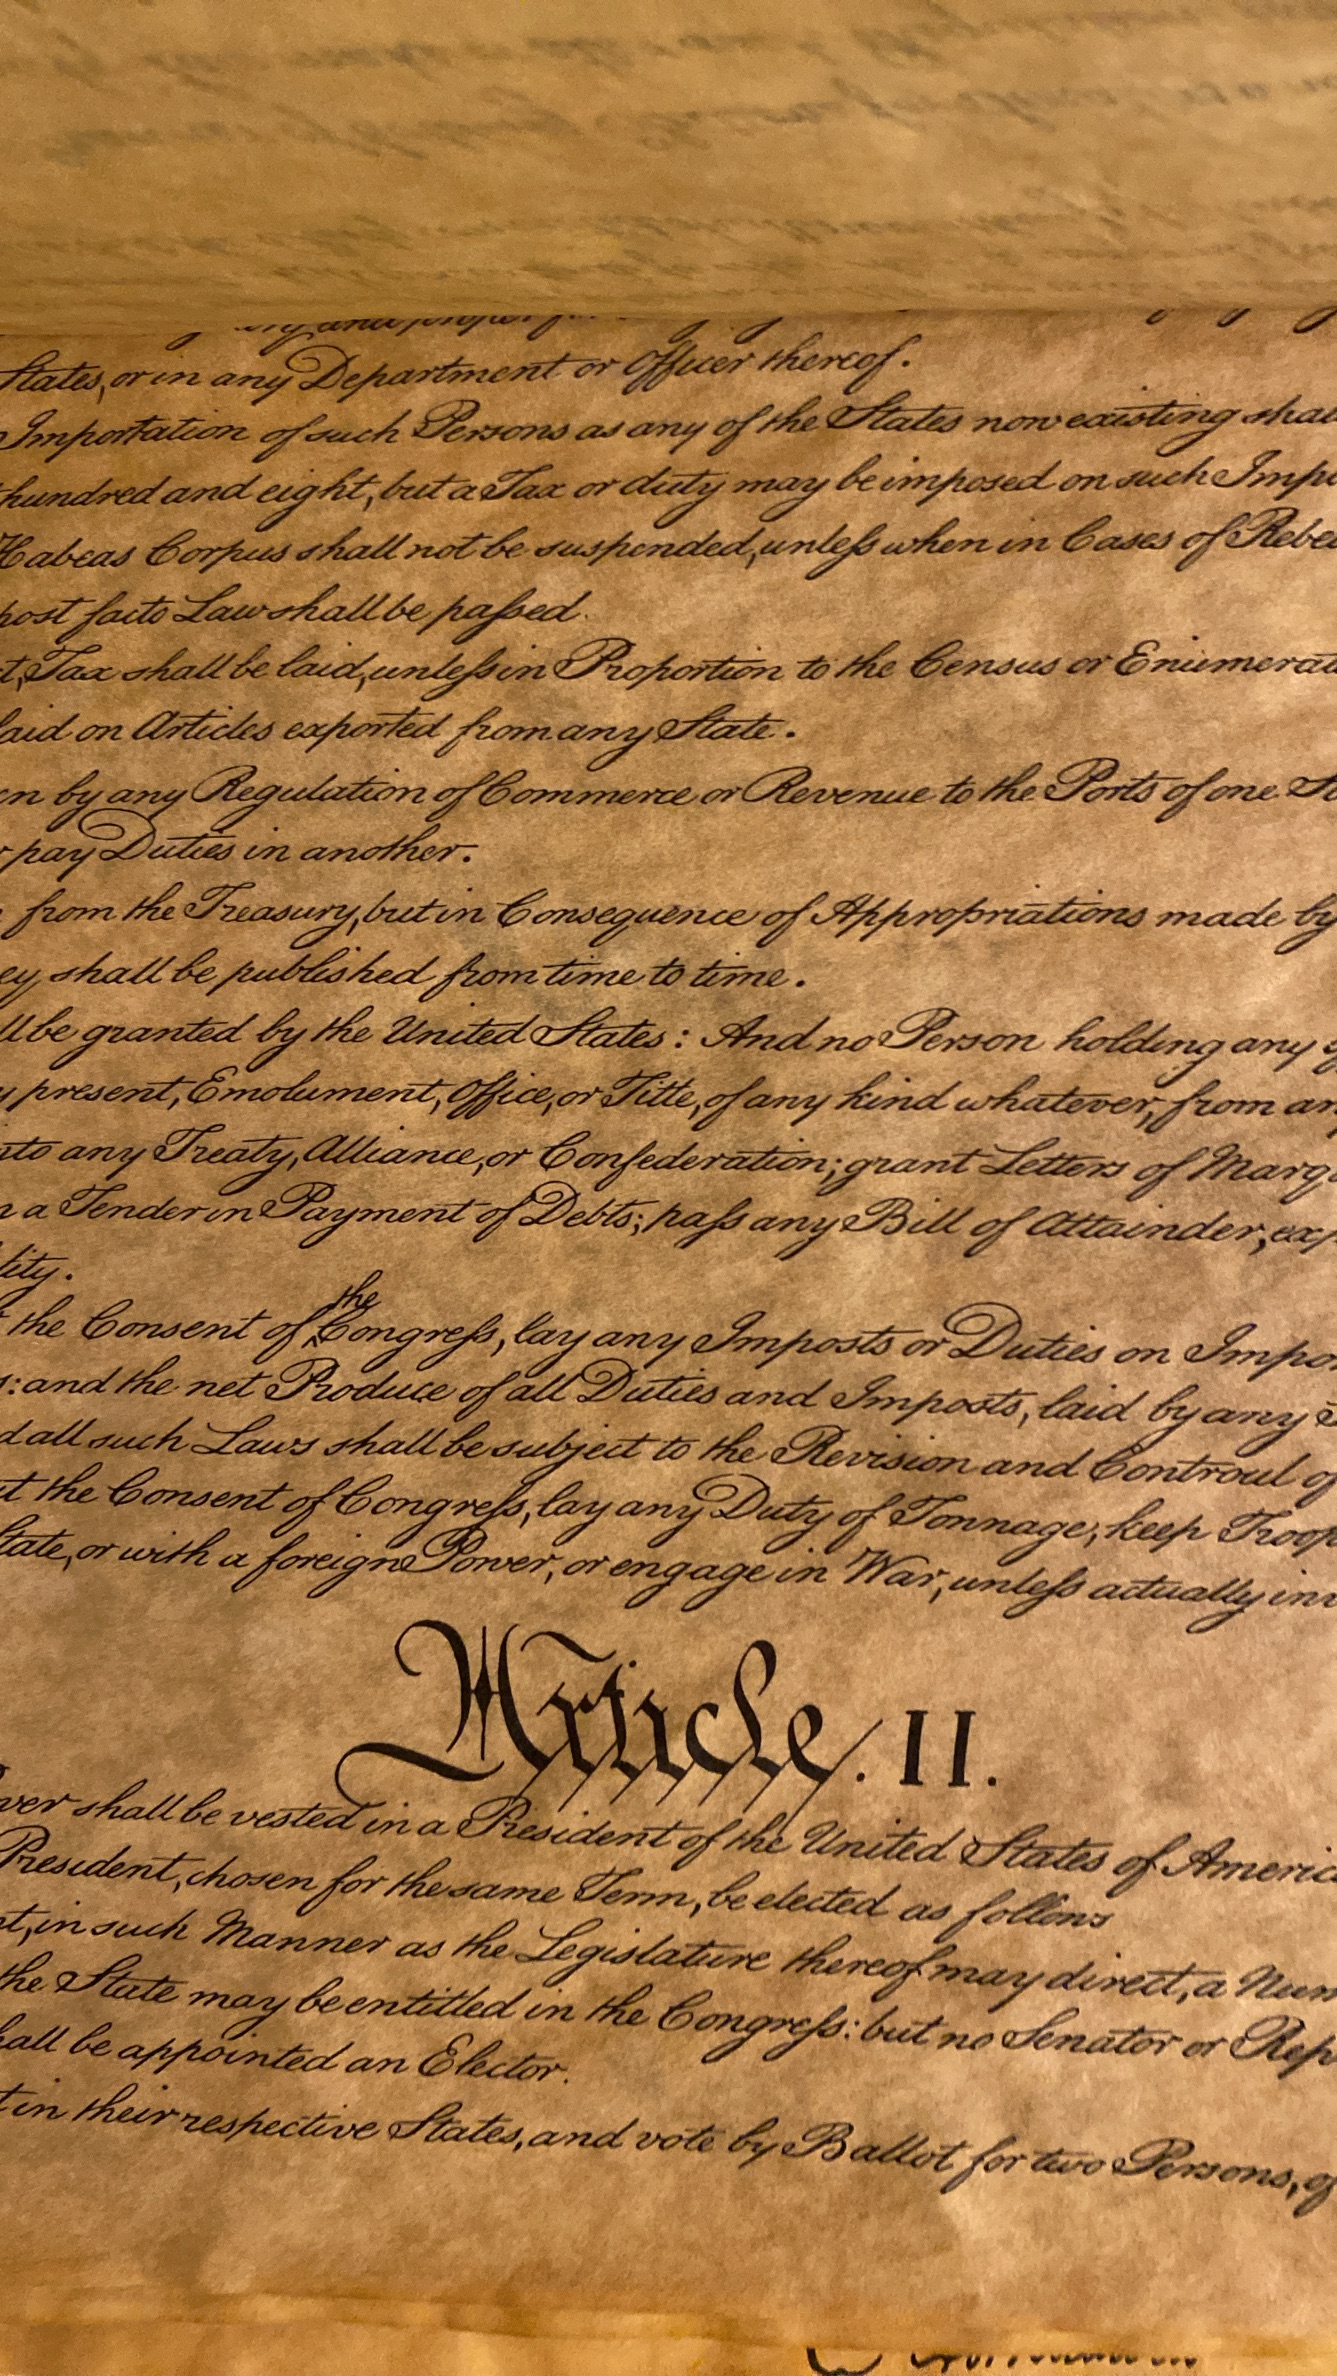 States, or in any Department or Officer thereof.
Importation of such Persons as any of the States now existing shall
hundred and eight, but a Tax or duty may be imposed on such Impo
Habeas Corpus shall not be suspended, unless when in Cases of Rebe
post facto Law shall be passed.
t, Tax shall be laid, unless in Proportion to the Census or Enumerat
laid on Articles exported from any State.
en by any Regulation of Commerce or Revenue to the Ports of one St
r pay Duties in another.
from the Treasury, but in Consequence of Appropriations made by
ey shall be published from time to time.
ll be granted by the United States: And no Person holding any
y present, Emolument, Office, or Title, of any kind whatever, from an
nto any Treaty, Alliance, or Confederation; grant Letters of Marq
a Tender in Payment of Debts; pass any Bill of Attainder, ex p
lity.
the
the Consent of Congress, lay any Imposts or Duties on Impo
s: and the net Produce of all Duties and Imposts, laid by any S
d all such Laws shall be subject to the Revision and Controul of
ut the Consent of Congress, lay any Duty of Tonnage, keep Troop
State, or with a foreign Power, or engage in War, unless actually inv
Article. II.
wer shall be vested in a President of the United States of America
President, chosen for the same Term, be elected as follows
t, in such Manner as the Legislature thereof may direct, a Num
the State may be entitled in the Congress: but no Senator or Rep
hall be appointed an Elector.
t in their respective States, and vote by Ballot for two Persons, of